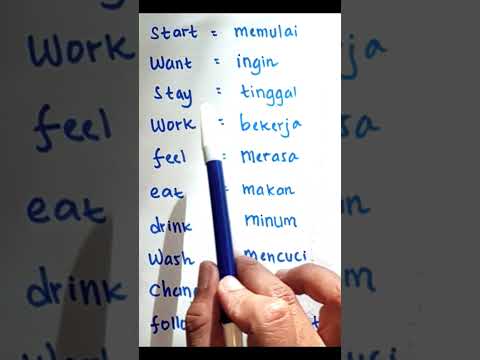 Start = memulai
Want = ingin
Stay = tinggal
Work = bekerja
feel = merasa
eat = makan
drink minum
Wash mencuci